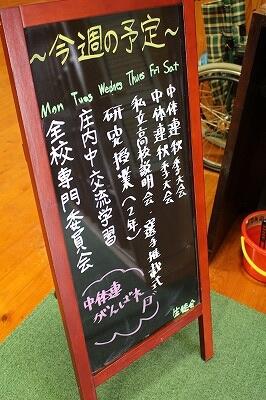 ～今週の予定～
Mon Tues Wednes Thurs Fri Sat
全校専門委員会
庄内中交流学習
研究授業(2年)
私立高校説明会・選手推戴式
中体連秋季大会
中体連秋季大会
中体連
がんば
生徒会